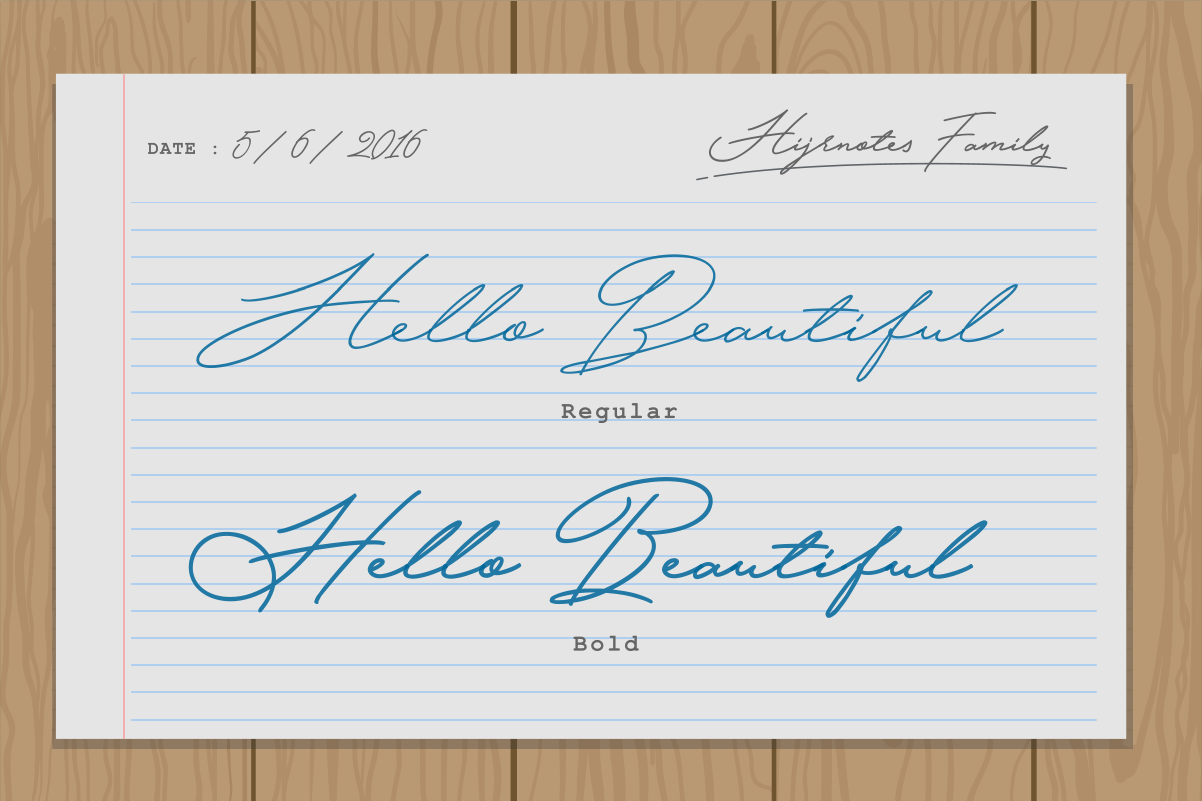 DATE : 5/6/2016
Hijrnotes Family
Hello Beautiful
Regular
Hello Beautiful
Bold